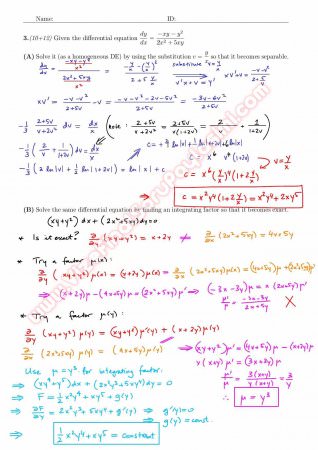 Name: ID:
3.(10+12) Given the differential equation dy/dx = (-xy - y²)/(2x² + 5xy)
(A) Solve it (as a homogeneous DE) by using the substitution v = y/x so that it becomes separable.
dy/dx = ((-xy-y²)/x²)/((2x²+5xy)/x²) = (-y/x - (y/x)²)/(2+5 y/x) substitute y/x = v v'x+v = y' xv'+v = (-v-v²)/(2+5v)
xv' = (-v-v²)/(2+5v) - v = (-v-v²-2v-5v²)/(2+5v) = (-3v-6v²)/(2+5v)
-1/3 (2+5v)/(v+2v²) dv = dx/x (note: (2+5v)/(v+2v²) = (2+5v)/(v(1+2v)) = 2/v + 1/(1+2v))
-1/3 (2/v + 1/(1+2v)) dv = dx/x
-1/3 (2 ln|v| + 1/2 ln|1+2v|) = ln|x| + c
c = x⁶ v⁴ (1+2v)
v = y/x
c = x⁶ (y/x)⁴ (1+2 y/x)
c = x²y⁴(1+2 y/x) = x²y⁴ + 2xy⁵
(B) Solve the same differential equation by finding an integrating factor so that it becomes exact.
(xy+y²) dx + (2x²+5xy) dy = 0
* Is it exact? ∂/∂y (xy+y²) = x+2y ≠ ∂/∂x (2x²+5xy) = 4x+5y
* Try a factor μ(x):
∂/∂y (xy+y²) μ(x) = (x+2y) μ(x) = ∂/∂x (2x²+5xy) μ(x) = (4x+5y) μ + (2x²+5xy) μ'
⇒ (x+2y) μ - (4x+5y) μ = (2x²+5xy) μ' ⇒ (-3x-3y) μ = x(2x+5y) μ'
μ'/μ = (-3x-3y)/(2x+5y) X
* Try a factor μ(y):
∂/∂y (xy+y²) μ(y) = (xy+y²) μ'(y) + (x+2y) μ(y)
∂/∂x (2x²+5xy) μ(y) = (4x+5y) μ(y)
⇒ (xy+y²) μ' = (4x+5y) μ - (x+2y) μ
y(x+y) μ' = (3x+3y) μ
μ'/μ = 3(x+y)/(y(x+y)) = 3/y
∴ μ = y³
Use μ = y³ for integrating factor:
⇒ (xy⁴+y⁵) dx + (2x²y³+5xy⁴) dy = 0
⇒ F = 1/2 x²y⁴ + xy⁵ + g(y)
⇒ ∂F/∂y = 2x²y³ + 5xy⁴ + g'(y) ⇒ g'(y) = 0
⇒ g(y) = const.
⇒ 1/2 x²y⁴ + xy⁵ = constant